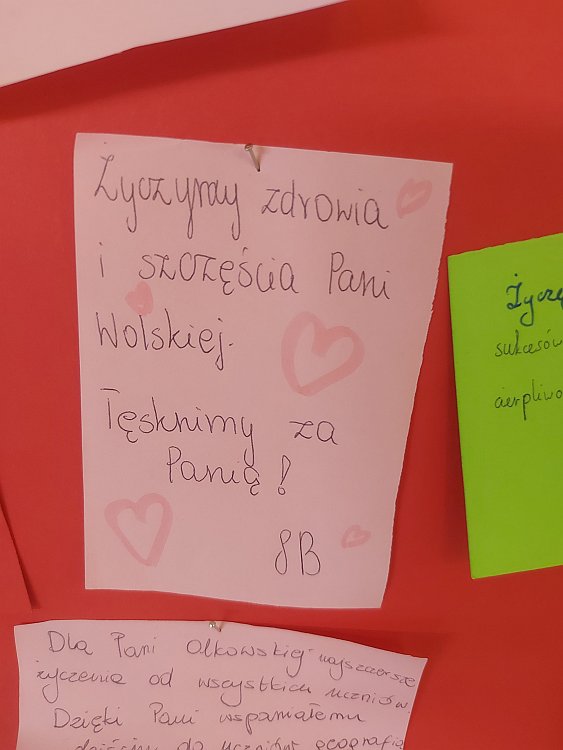 Życzymy zdrowia
i szczęścia Pani
Wolskiej.
Tęsknimy za
Panią!
8B
Życzę
sukcesów
cierpliwo
Dla Pani Olkowskiej najszczersze
życzenia od wszystkich uczniów
Dzięki Pani wspaniałemu
do uczniów geografia